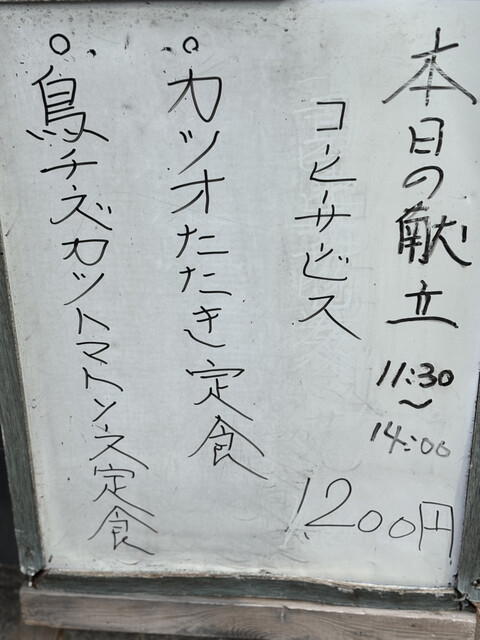 本日の献立
11:30
～
14:00
コーヒーサービス
1200円
○カツオたたき定食
○鳥チーズカツトマトソース定食